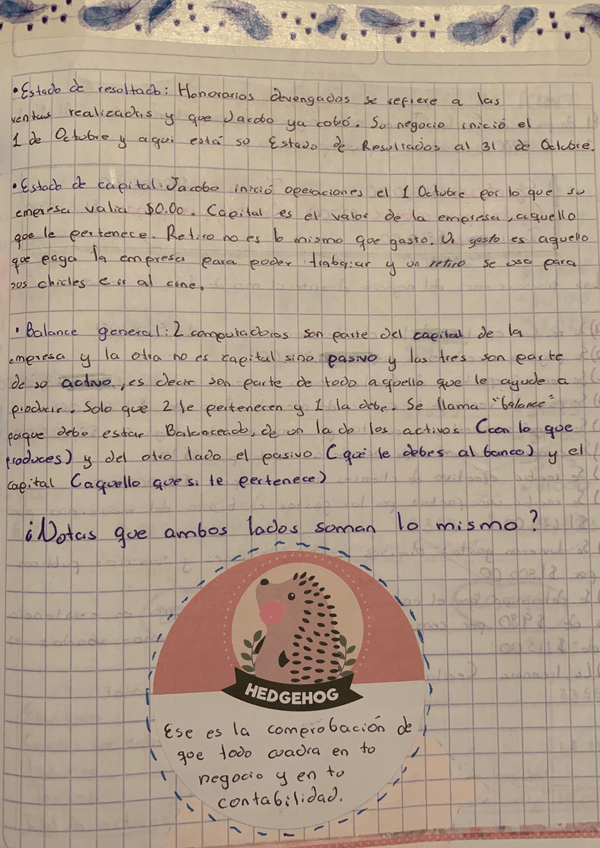 • Estado de resultado: Honorarios devengados se refiere a las
ventas realizadas y que Jacobo ya cobró. Su negocio inició el
1 de Octubre y aqui está su Estado de Resultados al 31 de Octubre.
• Estado de capital: Jacobo inició operaciones el 1 Octubre por lo que su
empresa valia $0.00. Capital es el valor de la empresa, aquello
que le pertenece. Retiro no es lo mismo que gasto. Un gasto es aquello
que paga la empresa para poder trabajar y un retiro se usa para
sus chicles e ir al cine.
• Balance general: 2 computadoras son parte del capital de la
empresa y la otra no es capital sino pasivo y las tres son parte
de su activo, es decir son parte de todo aquello que le ayude a
producir. Solo que 2 le pertenecen y 1 la debe. Se llama "balance"
porque debe estar Balanceado, de un lado los activos (con lo que
produces) y del otro lado el pasivo (que le debes al banco) y el
capital (aquello que si le pertenece)
¿Notas que ambos lados suman lo mismo?
HEDGEHOG
Ese es la comprobación de
que todo cuadra en tu
negocio y en tu
contabilidad.